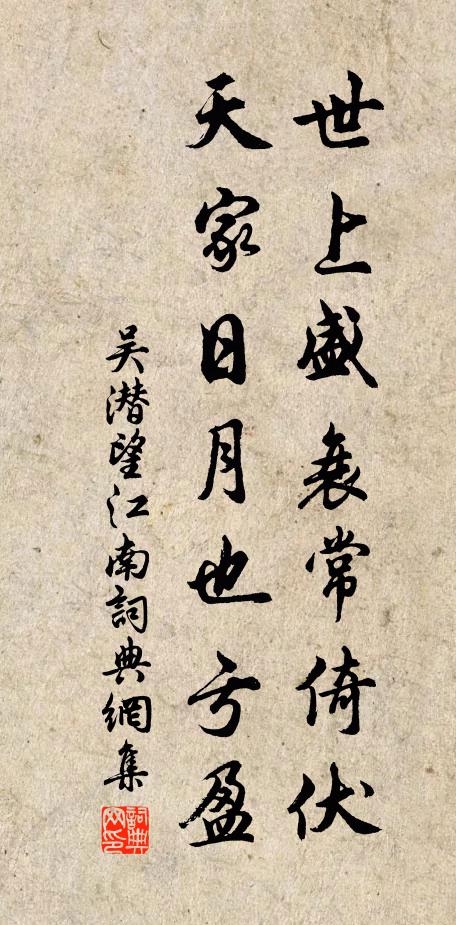 世上盛衰常倚伏
天家日月也亏盈
吴潜望江南詞典網集
詞典網印